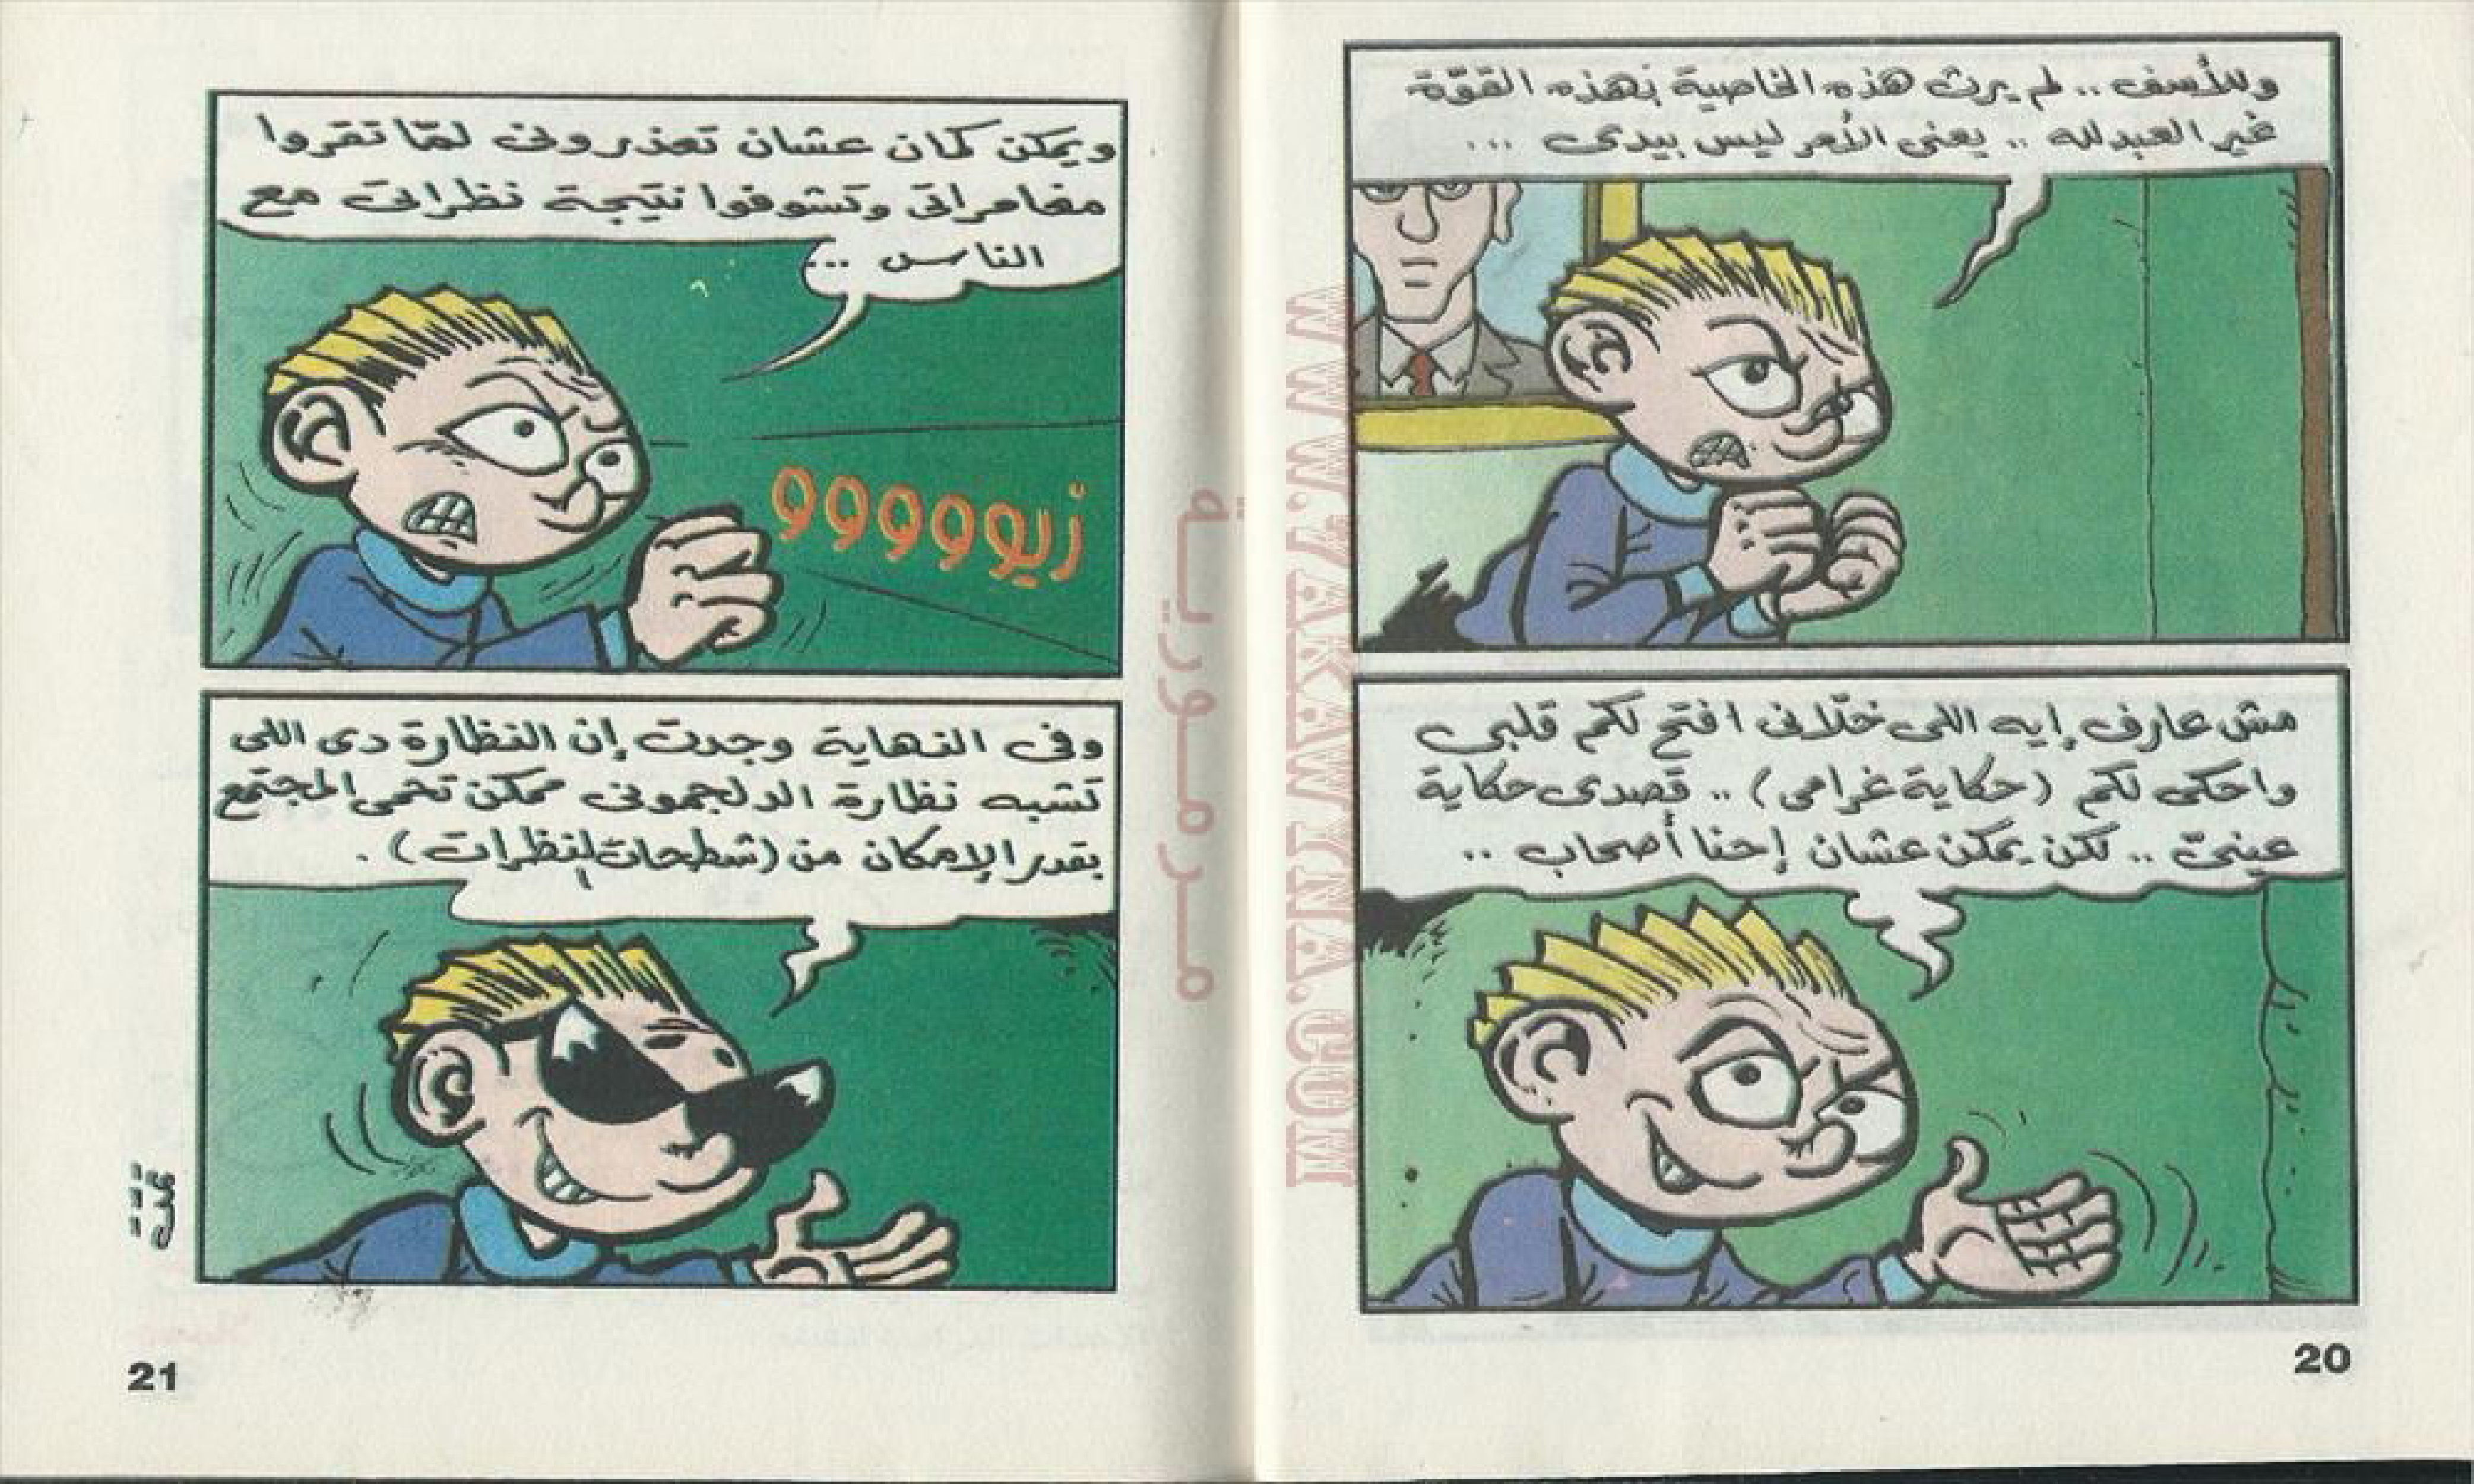 وللأسف .. لم يرث هذه الخاصية بهذه القوّة
غير العبدلله .. يعنى الأمر ليس بيدى ...
مش عارف إيه اللى خلّانى افتح لكم قلبى
واحكى لكم (حكاية غرامى) .. قصدى حكاية
عينىّ .. لكن يمكن عشان إحنا أصحاب ..
20
ويمكن كمان عشان تعذرونى لمّا تقروا
مغامراتى وتشوفوا نتيجة نظراتى مع
الناس ...
زيووووو
وفى النهاية وجدت إن النظارة دى اللى
تشبه نظارة الدلجمونى ممكن تحمى المجتمع
بقدر الإمكان من (شطحات النظرات) .
21
مرمورية